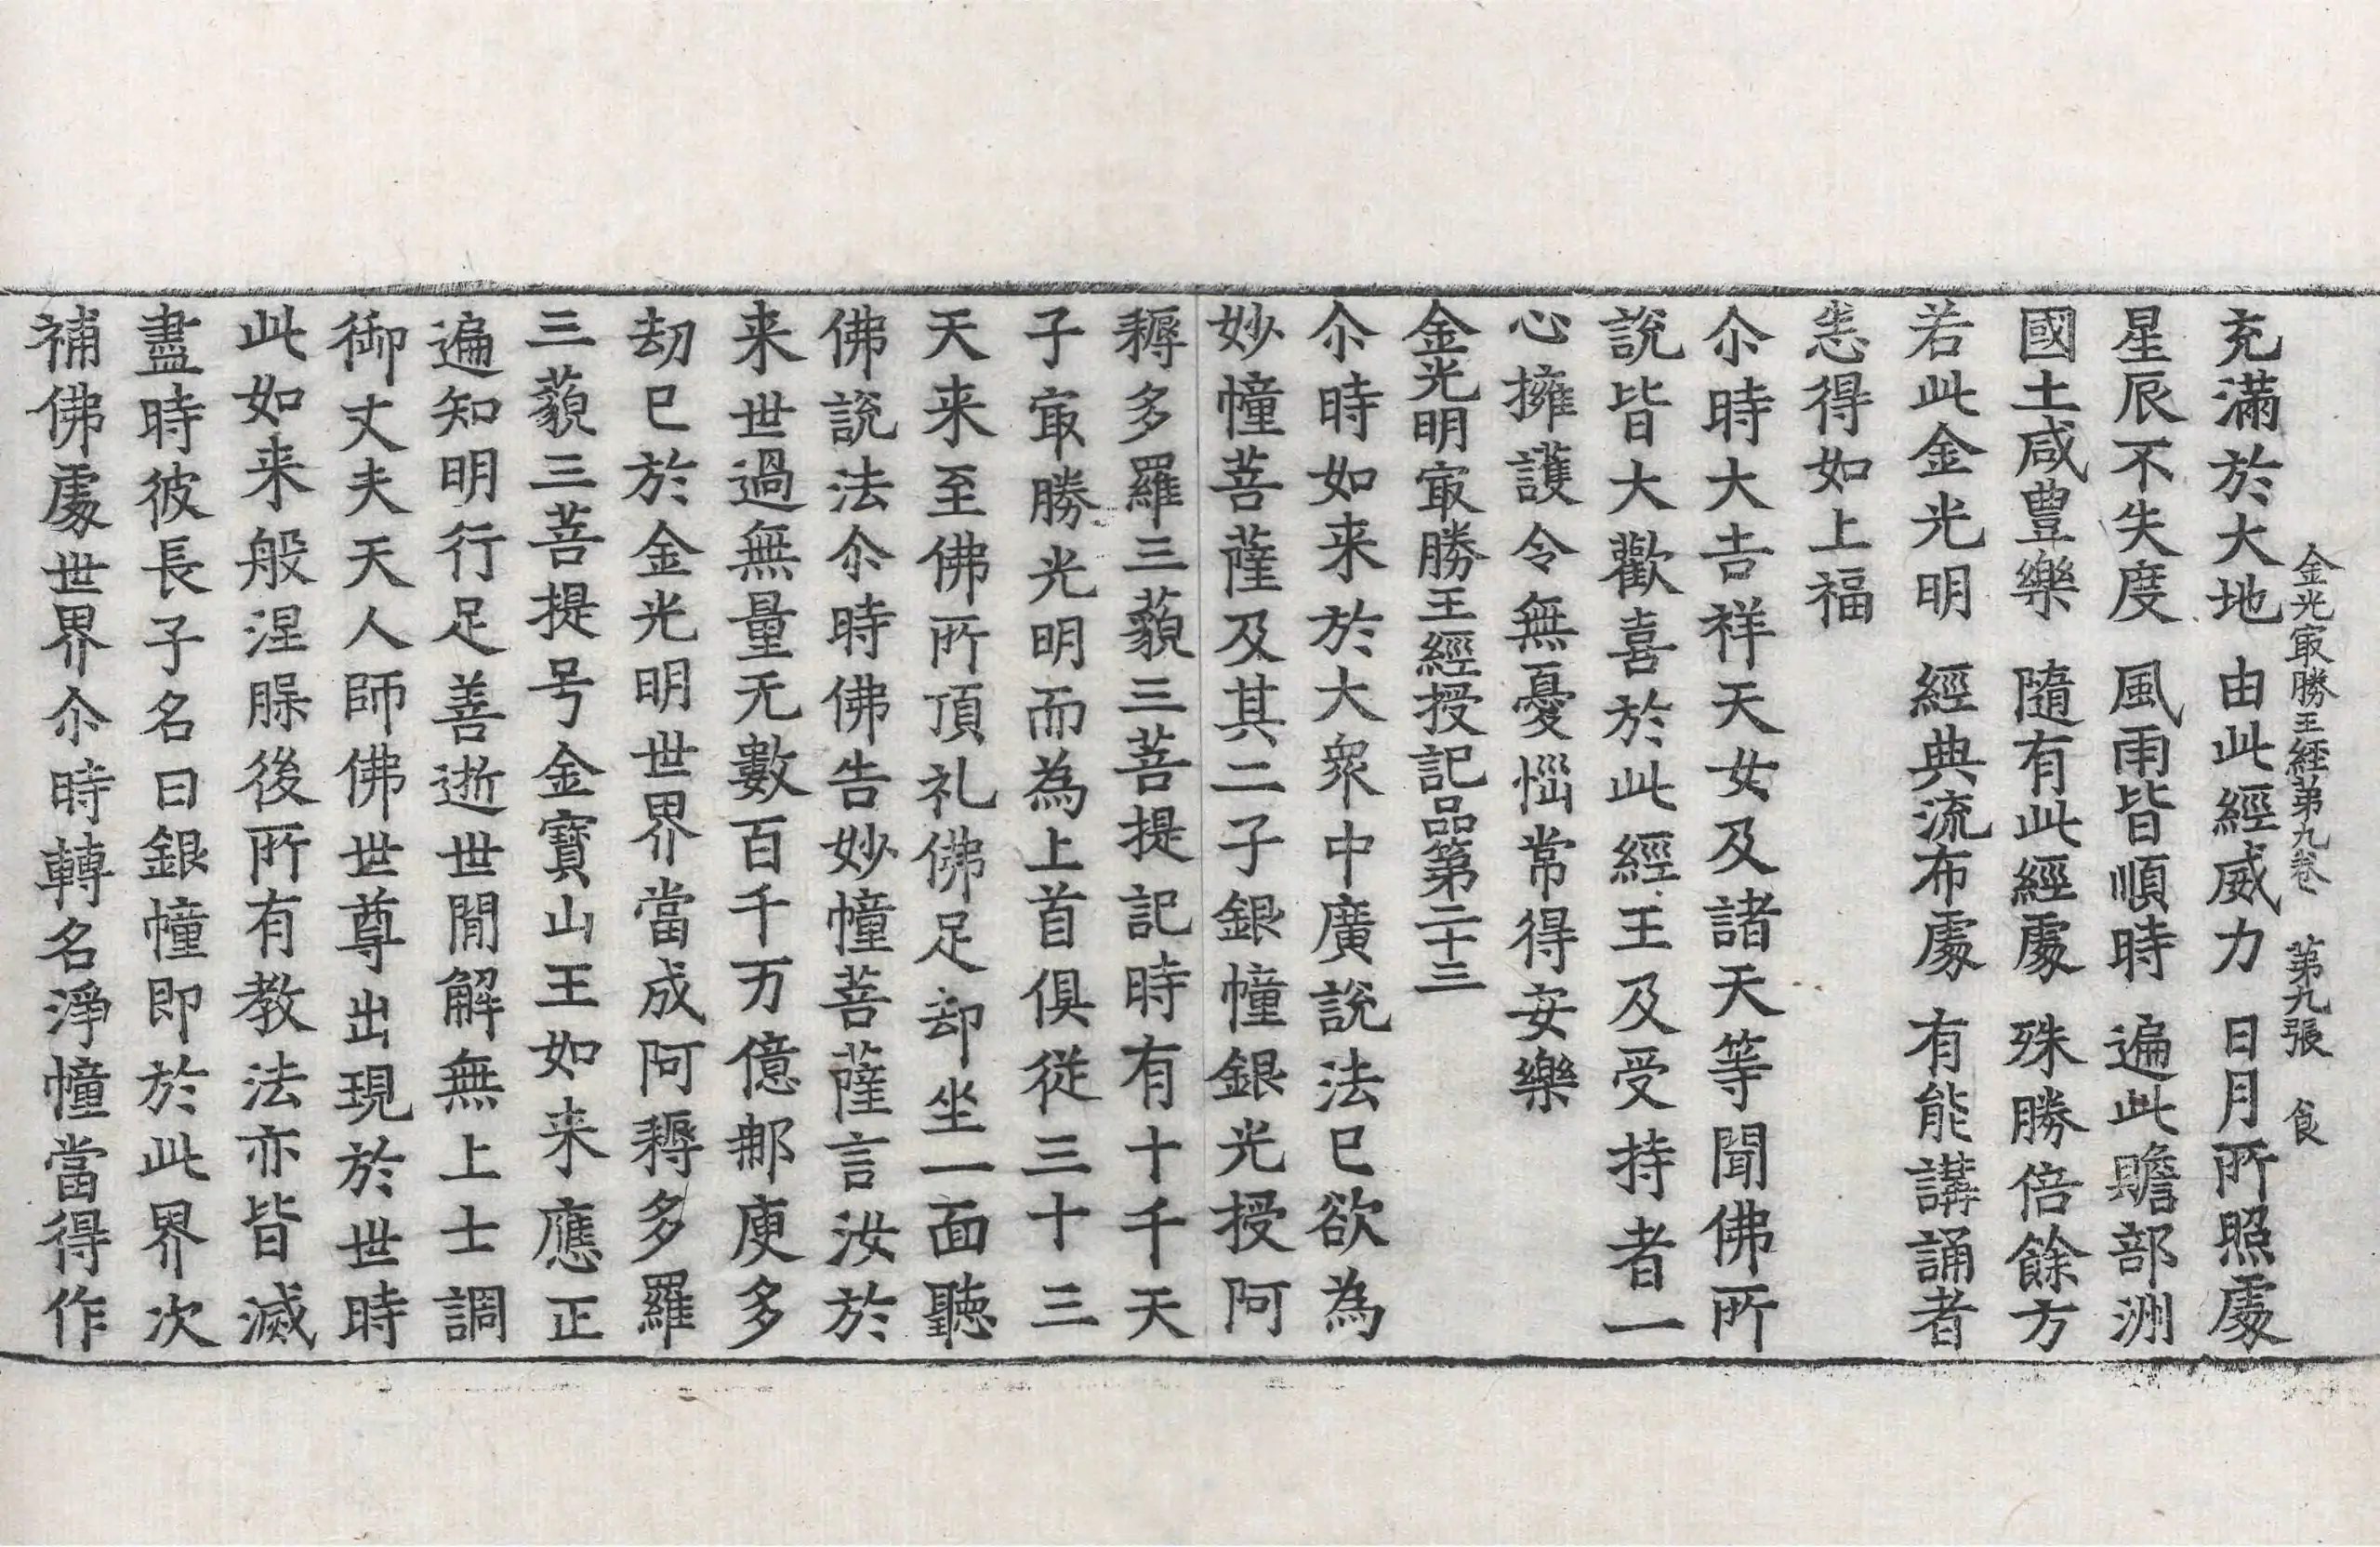 金光㝡勝王經苐九卷　苐九張　食
充滿於大地　由此經威力　日月所照處
星辰不失度　風雨皆順時　遍此贍部洲
國土咸豊樂　隨有此經處　殊勝倍餘方
若此金光明　經典流布處　有能講誦者
悉得如上福
尒時大吉祥天女及諸天等聞佛所
說皆大歡喜於此經王及受持者一
心擁護令無憂惱常得安樂
金光明㝡勝王經授記品第二十三
尒時如来於大衆中廣說法已欲為
妙幢菩薩及其二子銀幢銀光授阿
耨多羅三藐三菩提記時有十千天
子㝡勝光明而為上首俱從三十三
天来至佛所頂礼佛足却坐一面聽
佛說法尒時佛告妙幢菩薩言汝於
来世過無量无數百千万億那庾多
劫已於金光明世界當成阿耨多羅
三藐三菩提号金寶山王如来應正
遍知明行足善逝世閒解無上士調
御丈夫天人師佛世尊出現於世時
此如来般涅脲後所有教法亦皆滅
盡時彼長子名曰銀幢即於此界次
補佛處世界尒時轉名淨幢當得作